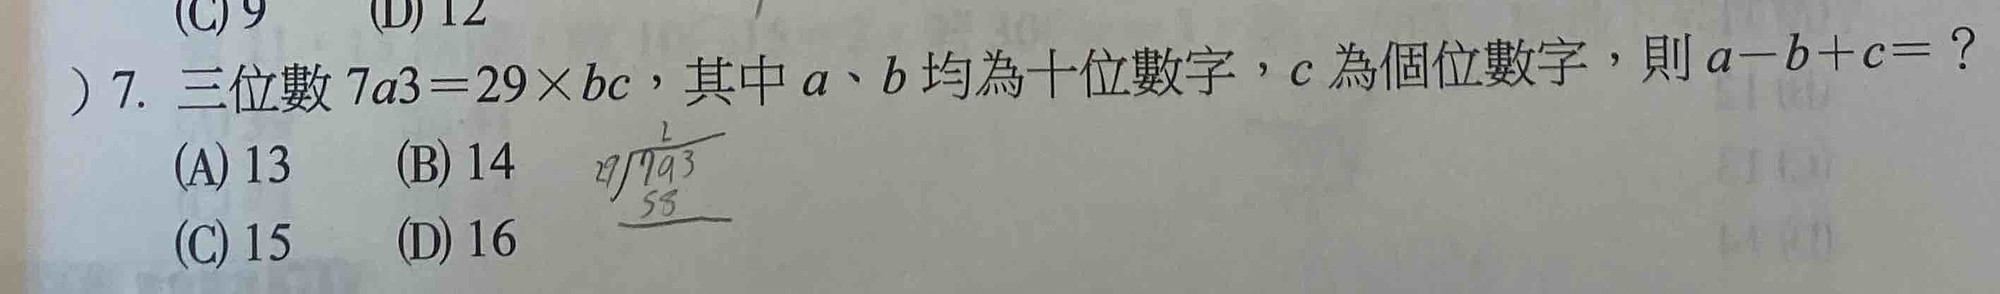 (C) 9 (D) 12
) 7. 三位數 7a3=29×bc，其中 a、b 均為十位數字，c 為個位數字，則 a-b+c=？
(A) 13 (B) 14
(C) 15 (D) 16
2
29 7a3
58